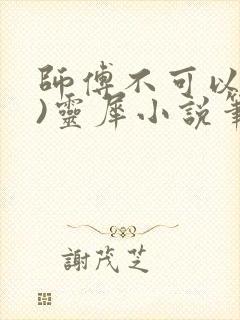 師傅不可以
)靈犀小說筆
謝茂芝